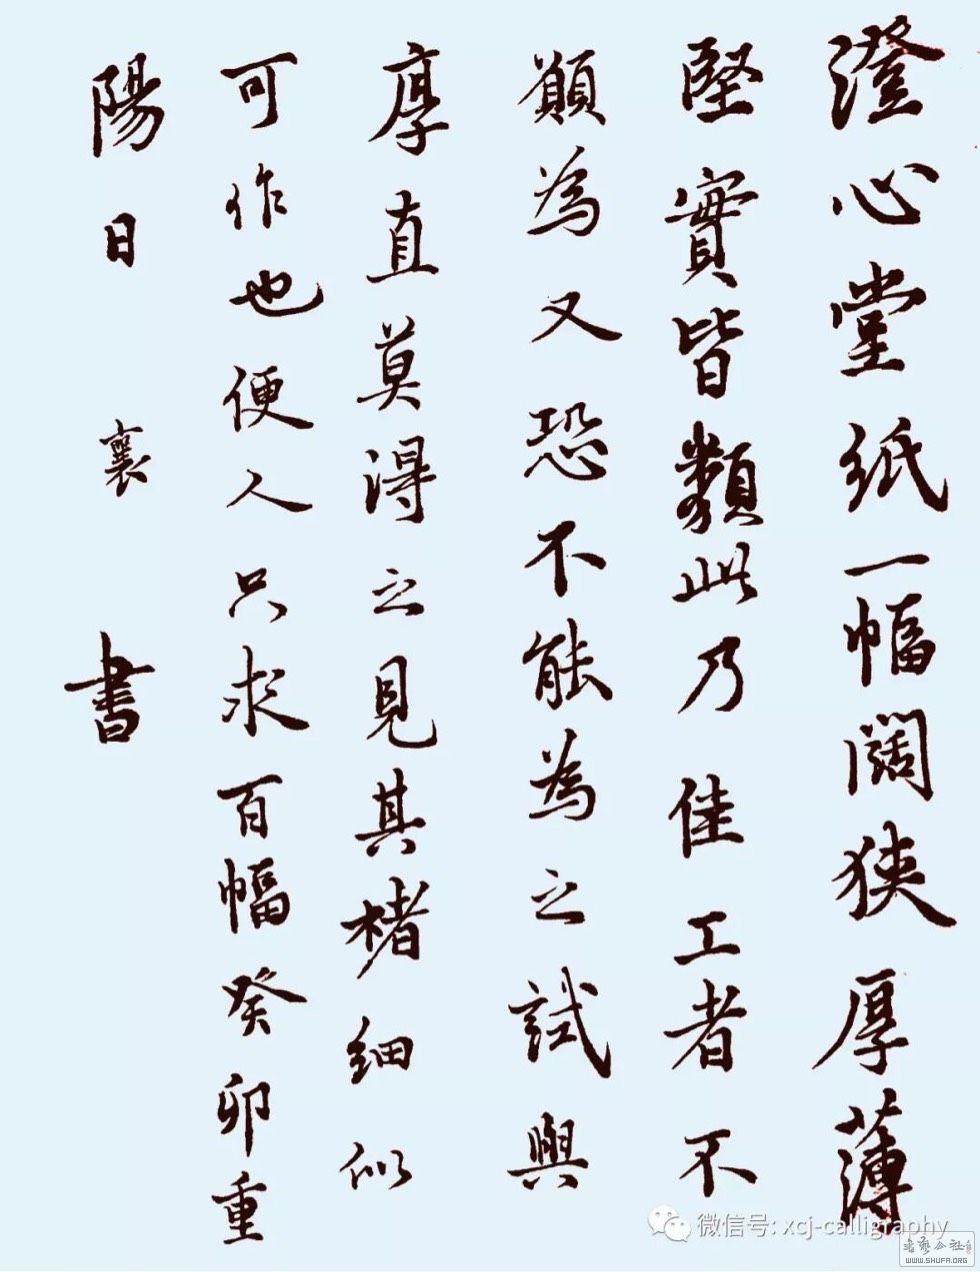 澄心堂紙一幅闊狹厚薄
堅實皆類此乃佳工者不
願為又恐不能為之試與
厚直莫得之見其楮細似
可作也便人只求百幅癸卯重
陽日襄書
微信号: xcj-calligraphy
書藝公社
WWW.SHUFA.ORG